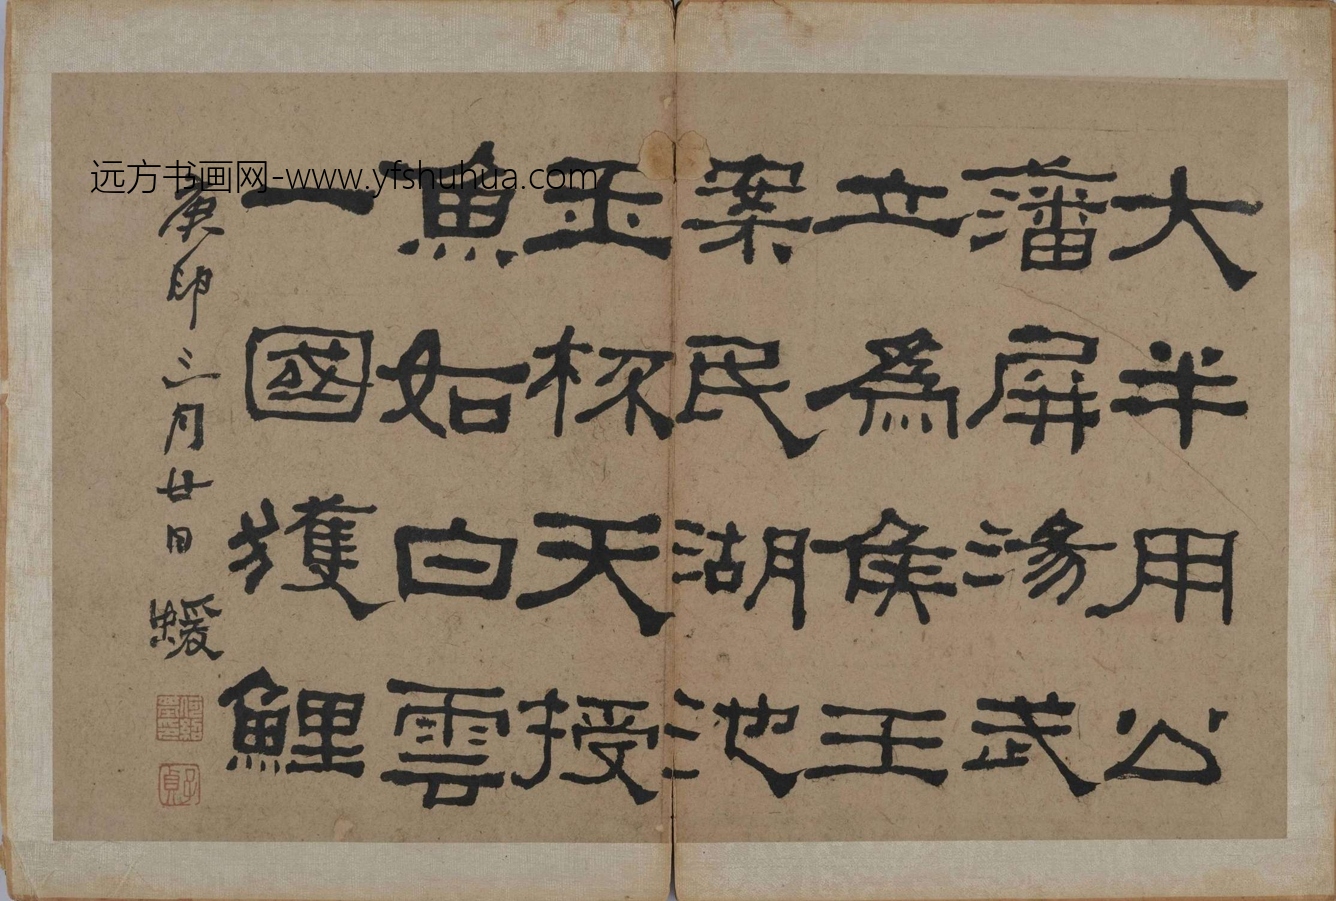 大半用公
藩屏湯武
立為侯王
案民湖池
玉杯天授
魚如白雲
一國獲鯉
庚寅三月廿日 蝯
何紹基印
子貞
远方书画网-www.yfshuhua.com